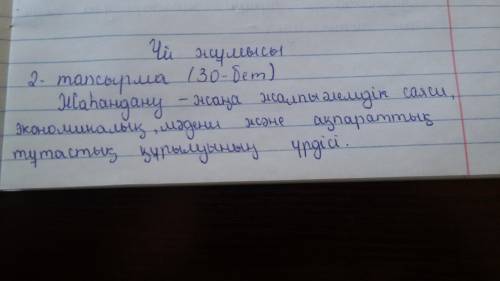 Үй жұмысы
2- тапсырма (30-бет)
Жаһандану - жаңа жалпыәлемдік саяси,
экономикалық, мәдени және ақпараттық
тұтастық құрылуының үрдісі.